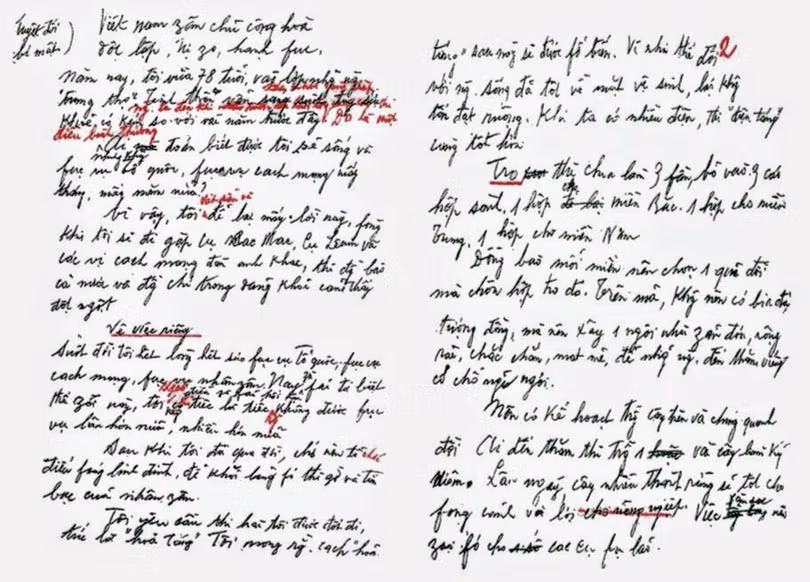 Tuyệt đối
bí mật
Việt nam zân chủ cộng hoà
độc lập, tự zo, hạnh fúc.
Năm nay, tôi vừa 78 tuổi, vào lớp những ng.
"trung thọ". Tinh thần
khoẻ có kém so với vài năm trước đây. Đó là một
điều bình thường
Ai mà đoán biết được tôi sẽ sống và
fục vụ tổ quốc, fục vụ cách mạng mấy
tháng, mấy năm nữa?
Vì vậy, tôi để lại mấy lời này, fòng
khi tôi sẽ đi gặp cụ Các Mác, cụ Lênin và
các vị cách mạng đàn anh khác, thì đ/b
cả nước và đ/c trong đảng khỏi cảm thấy
đột ngột
Về việc riêng
Suốt đời tôi hết lòng hết sức fục vụ Tổ quốc, fục vụ
cách mạng, fục vụ nhân zân. Nay fải từ biệt
thế zới này, tôi tiếc là tiếc không được fục
vụ lâu hơn nữa, nhiều hơn nữa
Sau khi tôi đã qua đời, chớ nên tổ chức
điếu fúng linh đình, để khỏi lãng fí thì zờ và tiền
bạc của nhân zân.
Tôi yêu cầu thi hài tôi được đốt đi,
tức là "hoả táng". Tôi mong rằng cách "hoả
2
táng" sau này sẽ được fổ biến. Vì như thế đối
với ng. sống đã tốt về mặt vệ sinh, lại không
tốn đất ruộng. Khi ta có nhiều điện, thì "điện táng"
càng tốt hơn.
Tro thì chia làm 3 fần, bỏ vào 3 cái
hộp sành, 1 hộp cho miền Bắc. 1 hộp cho miền
Trung. 1 hộp cho miền Nam
Đồng bào mỗi miền nên chọn 1 quả đồi
mà chôn hộp tro đó. Trên mả, không nên có bia đá
tượng đồng, mà nên xây 1 ngôi nhà zản đơn, rộng
rãi, chắc chắn, mát mẻ, để những ng. đến thăm viếng
có chỗ nghỉ ngơi.
Nên có kế hoạch trồng cây trên và chung quanh
đồi. Ai đến thăm thì trồng 1 và cây làm kỷ
niệm. Lâu ngày, cây nhiều thành rừng sẽ tốt cho
fong cảnh và lợi cho nông nghiệp. Việc săn sóc nên
zao fó cho các cụ fụ lão.